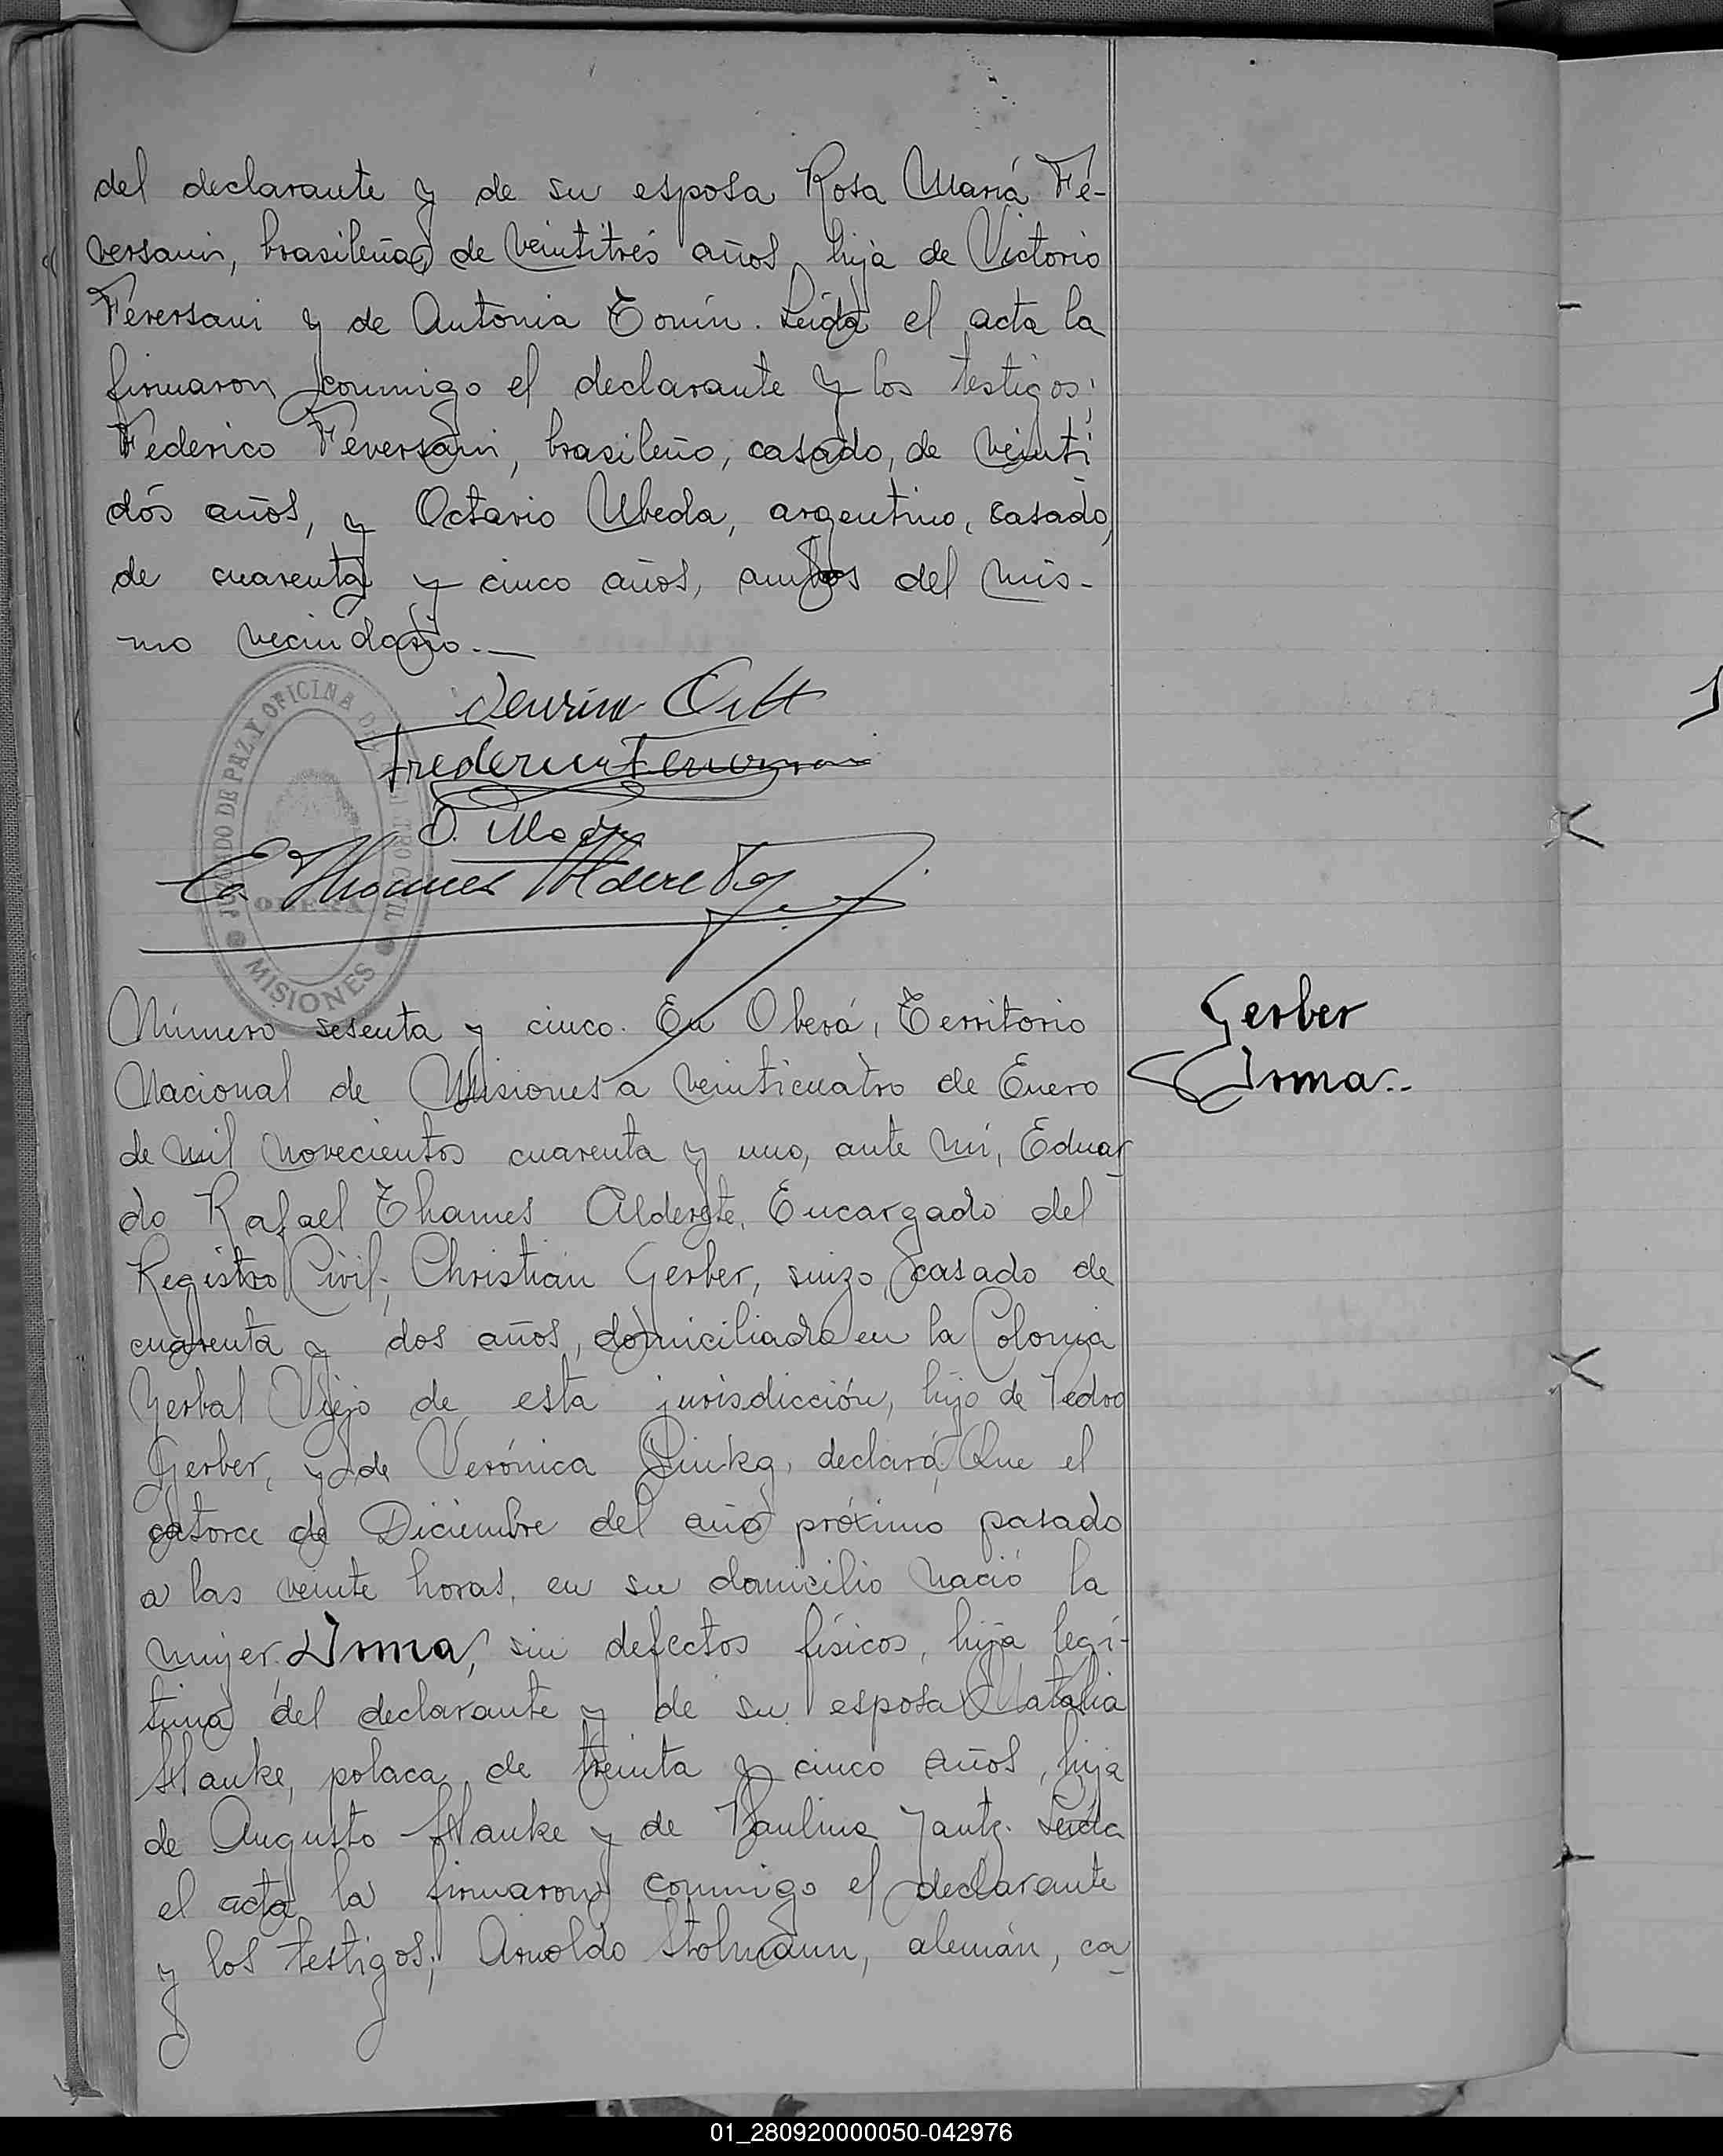 del declarante y de su esposa Rosa María Fe-
versani, brasileña, de veintitrés años, hija de Victorio
Feversani y de Antonia Tonin. Leída el acta la
firmaron conmigo el declarante y los testigos;
Federico Feversani, brasileño, casado, de veinti
dós años, y Octavio Ubeda, argentino, casado,
de cuarenta y cinco años, ambos del mis-
mo vecindario.—
JUZGADO DE PAZ Y OFICINA DEL REGISTRO CIVIL
OBERA
MISIONES
Número sesenta y cinco. En Oberá, Territorio
Nacional de Misiones a veinticuatro de Enero
de mil novecientos cuarenta y uno, ante mí, Eduar
do Rafael Thames Alderete, Encargado del
Registro Civil; Christian Gerber, suizo, casado de
cuarenta y dos años, domiciliado en la Colonia
Yerbal Viejo de esta jurisdicción, hijo de Pedro
Gerber, y de Verónica declaró; Que el
catorce de Diciembre del año próximo pasado
a las veinte horas, en su domicilio nació la
mujer Irma, sin defectos físicos, hija legí-
tima del declarante y de su esposa Natalia
Hauke, polaca, de treinta y cinco años, hija
de Augusto Hauke y de Paulina Jantz. Leída
el acta la firmaron conmigo el declarante
y los testigos; Arnoldo Stohmann, alemán, ca
Gerber
Irma..
01_280920000050-042976